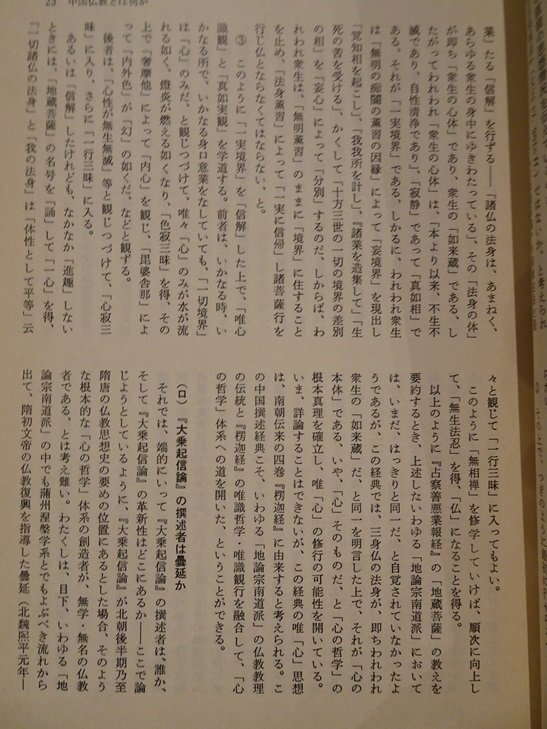 23　中国仏教とは何か
業」たる「信解」を行ずる――「諸仏の法身は、あまねく、
あらゆる衆生の身中にゆきわたっている」、その「法身の体」
が即ち「衆生の心体」であり、衆生の「如来蔵」である、し
たがってわれわれ「衆生の心体」は、「本より以来、不生不
滅であり、自性清浄であり」、「寂静」であって「真如相」で
ある、それが「一実境界」である、しかるに、われわれ衆生
は「無明の痴闇の薫習の因縁」によって「妄境界」を現出し
「覚知相を起こし」、「我我所を計し」、「諸業を造集して」「生
死の苦を受ける」、かくして「十方三世の一切の境界の差別
の相」を「妄心」によって「分別」するのだ、しからば、わ
れわれ衆生は、「無明薫習」のままに「境界」に住すること
を止め、「法身薫習」によって「一実に信帰」し諸菩薩行を
行じ仏とならなくてはならない、と。
③　このように「一実境界」を「信解」した上で、「唯心
識観」と「真如実観」を学道する。前者は、いかなる時、い
かなる所で、いかなる身口意業をなしていても、「一切境界」
は「心」のみだ、と観じつづけて、唯々「心」のみが水が流
れる如く、燈炎が燃える如くなり、「色寂三昧」を得、その
上で「奢摩他」によって「内心」を観じ、「毘婆舎那」によ
って「内外色」が「幻」の如くだ、などと観ずる。
後者は、「心性が無生無滅」等と観じつづけて、「心寂三
昧」に入り、さらに「一行三昧」に入る。
あるいは「信解」したけれども、なかなか「進趣」しない
ときには、「地蔵菩薩」の名号を「誦」して「一心」を得、
「一切諸仏の法身」と「我の法身」は「体性として平等」云
々と観じて「一行三昧」に入ってもよい。
このように「無相禅」を修学していけば、順次に向上し
て、「無生法忍」を得、「仏」になることを得る。
以上のように『占察善悪業報経』の「地蔵菩薩」の教えを
要約するとき、上述したいわゆる「地論宗南道派」において
は、いまだ、はっきりと同一だ、と自覚されていなかったよ
うであるが、この経典では、三身仏の法身が、即ちわれわれ
衆生の「如来蔵」だ、と同一を明言した上で、それが「心の
本体」である、いや、「心」そのものだ、と「心の哲学」の
根本真理を確立し、唯「心」の修行の可能性を開いている。
いま、詳論することはできないが、この経典の唯「心」思想
は、南朝伝来の四巻『楞伽経』に由来すると考えられる。こ
の中国撰述経典こそ、いわゆる「地論宗南道派」の仏教教理
の伝統と『楞伽経』の唯識哲学・唯識観行を融合して、「心
の哲学」体系への道を開いた、ということができる。
（ロ）『大乗起信論』の撰述者は曇延か
それでは、端的にいって『大乗起信論』の撰述者は、誰か、
そして『大乗起信論』の革新性はどこにあるか――ここで論
じようとしているように、『大乗起信論』が北朝後半期乃至
隋唐の仏教思想史の要めの位置にあるとした場合、そのよう
な根本的な「心の哲学」体系の創造者が、無学・無名の仏教
者である、とは考え難い。わたくしは、目下、いわゆる「地
論宗南道派」の中でも蒲州涅槃学系とでもよぶべき流れから
出て、隋初文帝の仏教復興を指導した曇延（北魏熙平元年―